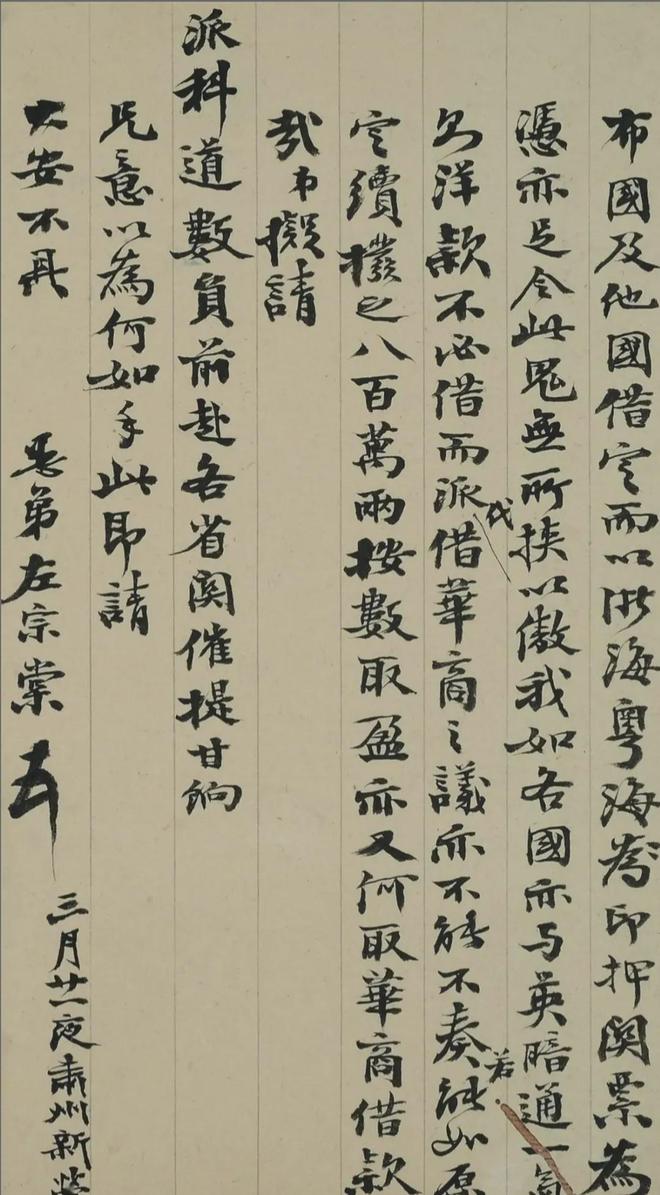 布國及他國借定而以浙海粵海為印押關票為
憑亦足令此鬼無所挾以傲我如各國亦与英暗通一氣
洋款不必借而派借華商之議亦不能不奏若能如原
定續撥之八百萬兩按數取盈亦又何取華商借款
哉弟擬請
派科道數員前赴各省關催提甘餉
兄意以為何如手此即請
大安不具 愚弟左宗棠
三月廿一夜肅州新營